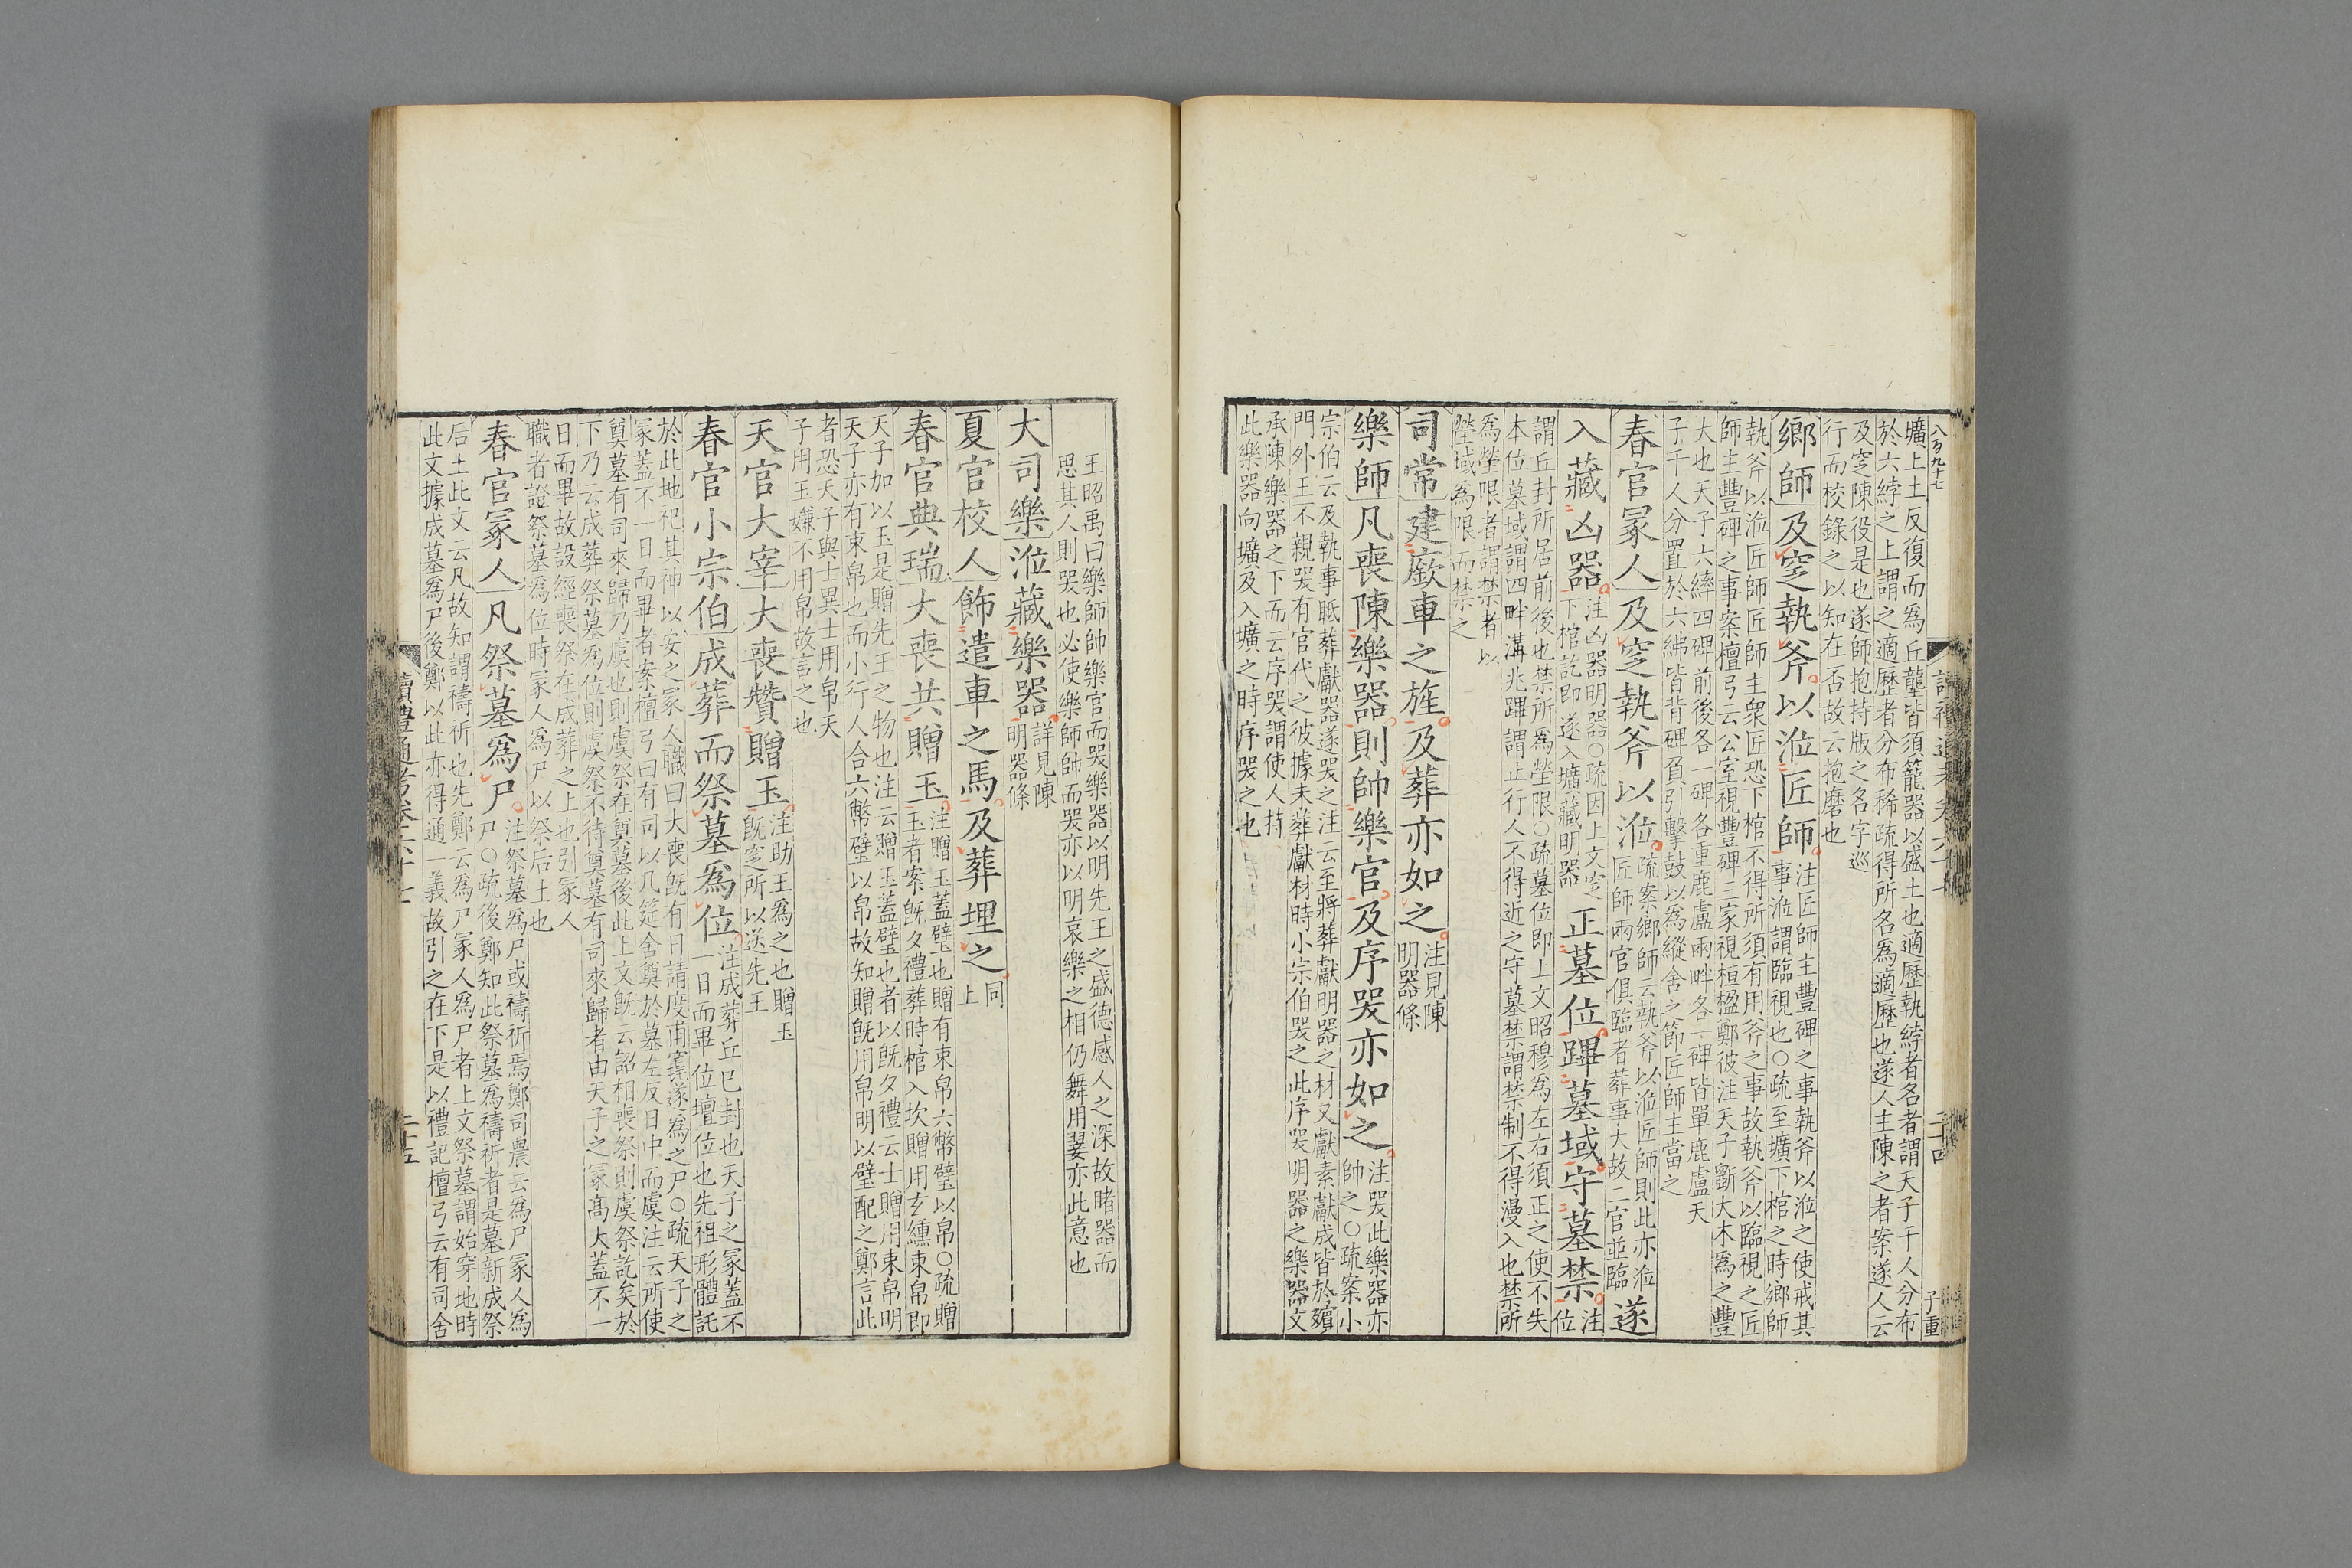 八百九十七
壙上土反復而爲丘壟皆須籠器以盛土也適歷執綍者名者謂天子千人分布
於六綍之上謂之適歷者分布稀疏得所名爲適歷也遂人主陳之者案遂人云
及窆陳役是也遂師抱持版之名字巡
行而校錄之以知在否故云抱磨也
鄉師及窆執斧以涖匠師
注匠師主豐碑之事執斧以涖之使戒其
事涖謂臨視也○疏至壙下棺之時鄉師
執斧以涖匠師匠師主衆匠恐下棺不得所須有用斧之事故執斧以臨視之匠
師主豐碑之事案檀弓云公室視豐碑三家視桓楹鄭彼注天子斲大木爲之豐
大也天子六繂四碑前後各一碑各重鹿盧兩畔各一碑皆單鹿盧天
子千人分置於六紼皆背碑負引擊鼓以爲縱舍之節匠師主當之
春官冢人及窆執斧以涖
疏案鄉師云執斧以涖匠師則此亦涖
匠師兩官俱臨者葬事大故二官並臨
遂
入藏凶器
注凶器明器○疏因上文窆
下棺訖即遂入壙藏明器
正墓位蹕墓域守墓禁
注
位
謂丘封所居前後也禁所爲塋限○疏墓位即上文昭穆爲左右須正之使不失
本位墓域謂四畔溝兆蹕謂止行人不得近之守墓禁謂禁制不得漫入也禁所
爲塋限者謂禁者以
塋域爲限而禁之
司常建廞車之旌及葬亦如之
注見陳
明器條
樂師凡喪陳樂器則帥樂官及序哭亦如之
注哭此樂器亦
帥之○疏案小
宗伯云及執事眡葬獻器遂哭之注云至將葬獻明器之材又獻素獻成皆於殯
門外王不親哭有官代之彼據未葬獻材時小宗伯哭之此序哭明器之樂器文
承陳樂器之下而云序哭謂使人持
此樂器向壙及入壙之時序哭之也
二十四
子重
王昭禹曰樂師帥樂官而哭樂器以明先王之盛德感人之深故睹器而
思其人則哭也必使樂師帥而哭亦以明哀樂之相仍舞用翣亦此意也
大司樂涖藏樂器
詳見陳
明器條
夏官校人飾遣車之馬及葬埋之
同
上
春官典瑞大喪共贈玉
注贈玉蓋璧也贈有束帛六幣璧以帛○疏贈
玉者案旣夕禮葬時棺入坎贈用玄纁束帛即
天子加以玉是贈先王之物也注云贈玉蓋璧也者以旣夕禮云士贈用束帛明
天子亦有束帛也而小行人合六幣璧以帛故知贈旣用帛明以璧配之鄭言此
者恐天子與士異士用帛天
子用玉嫌不用帛故言之也
天官大宰大喪贊贈玉
注助王爲之也贈玉
旣窆所以送先王
春官小宗伯成葬而祭墓爲位
注成葬丘已封也天子之冢蓋不
一日而畢位壇位也先祖形體託
於此地祀其神以安之冢人職曰大喪旣有日請度甫竁遂爲之尸○疏天子之
冢蓋不一日而畢者案檀弓曰有司以几筵舍奠於墓左反日中而虞注云所使
奠墓有司來歸乃虞也則虞祭在奠墓後此上文旣云詔相喪祭則虞祭訖矣於
下乃云成葬祭墓爲位則虞祭不待奠墓有司來歸者由天子之冢高大蓋不一
日而畢故設經喪祭在成葬之上也引冢人
職者證祭墓爲位時冢人爲尸以祭后土也
春官冢人凡祭墓爲尸
注祭墓爲尸或禱祈焉鄭司農云爲尸冢人爲
尸○疏後鄭知此祭墓爲禱祈者是墓新成祭
后土此文云凡故知謂禱祈也先鄭云爲尸冢人爲尸者上文祭墓謂始穿地時
此文據成墓爲尸後鄭以此亦得通一義故引之在下是以禮記檀弓云有司舍
讀禮通考卷六十七
二十五